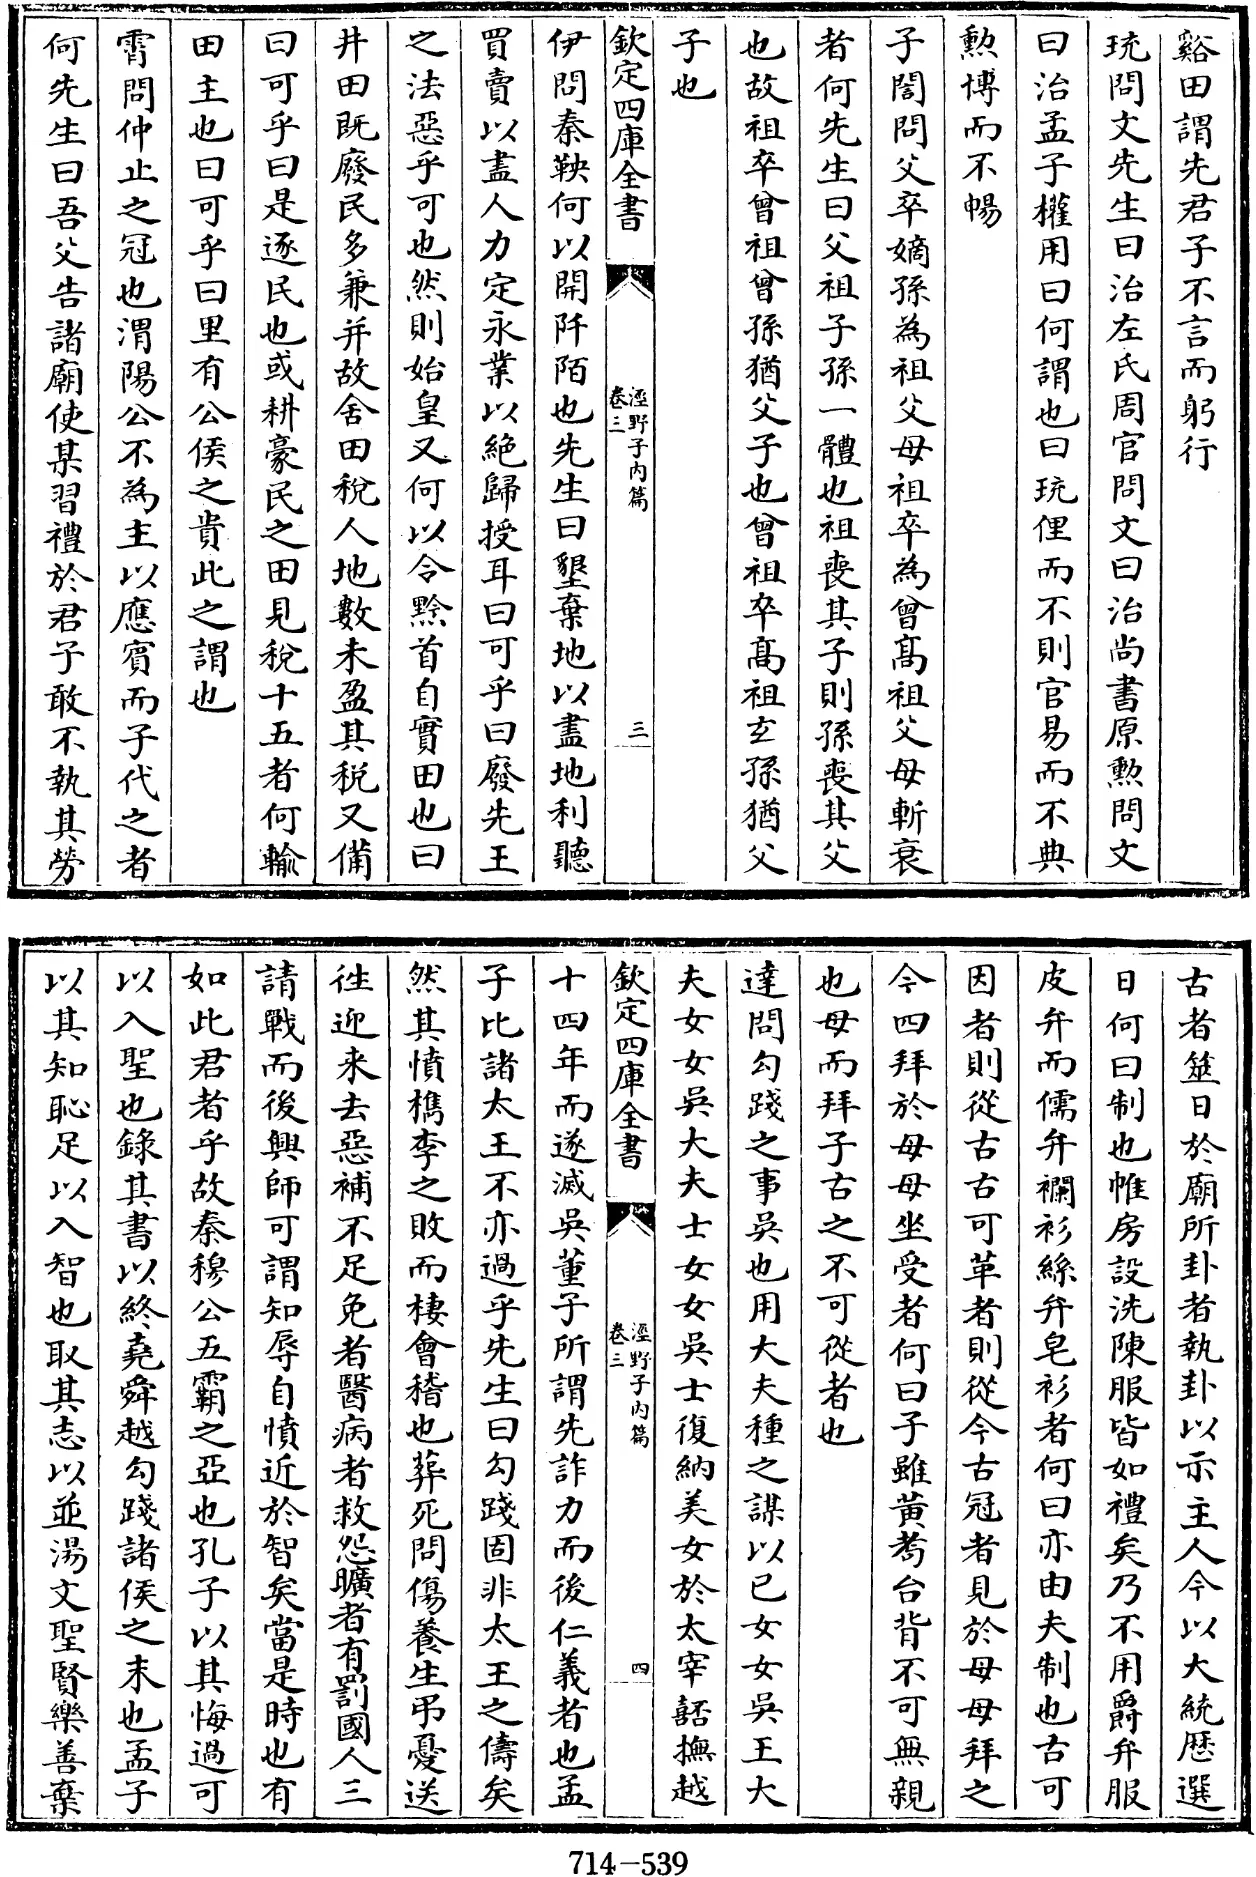 谿田謂先君子不言而躬行
珫問文先生曰治左氏周官問文曰治尚書原勲問文
曰治孟子權用曰何謂也曰珫俚而不則官易而不典
勲博而不暢
子誾問父卒嫡孫為祖父母祖卒為曾髙祖父母斬衰
者何先生曰父祖子孫一體也祖喪其子則孫喪其父
也故祖卒曾祖曾孫猶父子也曾祖卒髙祖玄孫猶父
子也
欽定四庫全書
涇野子内篇
卷三
三
伊問秦鞅何以開阡陌也先生曰墾棄地以盡地利聽
買賣以盡人力定永業以絶歸授耳曰可乎曰廢先王
之法惡乎可也然則始皇又何以令黔首自實田也曰
井田既廢民多兼并故舍田稅人地數未盈其稅又備
曰可乎曰是逐民也或耕豪民之田見稅十五者何輸
田主也曰可乎曰里有公侯之貴此之謂也
霄問仲止之冠也渭陽公不為主以應賓而子代之者
何先生曰吾父告諸廟使某習禮於君子敢不執其勞
古者筮日於廟所卦者執卦以示主人今以大統歴選
日何曰制也帷房設洗陳服皆如禮矣乃不用爵弁服
皮弁而儒弁襴衫絲弁皂衫者何曰亦由夫制也古可
因者則從古古可革者則從今古冠者見於母母拜之
今四拜於母母坐受者何曰子雖黄耉台背不可無親
也母而拜子古之不可從者也
達問勾踐之事吳也用大夫種之謀以已女女吳王大
夫女女吳大夫士女女吳士復納美女於太宰嚭撫越
欽定四庫全書
涇野子内篇
卷三
四
十四年而遂滅吳董子所謂先詐力而後仁義者也孟
子比諸太王不亦過乎先生曰勾踐固非太王之儔矣
然其憤檇李之敗而棲會稽也葬死問傷養生弔憂送
徃迎来去惡補不足免者醫病者救怨曠者有罰國人三
請戰而後興師可謂知辱自憤近於智矣當是時也有
如此君者乎故秦穆公五霸之亞也孔子以其悔過可
以入聖也錄其書以終堯舜越勾踐諸侯之末也孟子
以其知恥足以入智也取其志以並湯文聖賢樂善棄
714—539